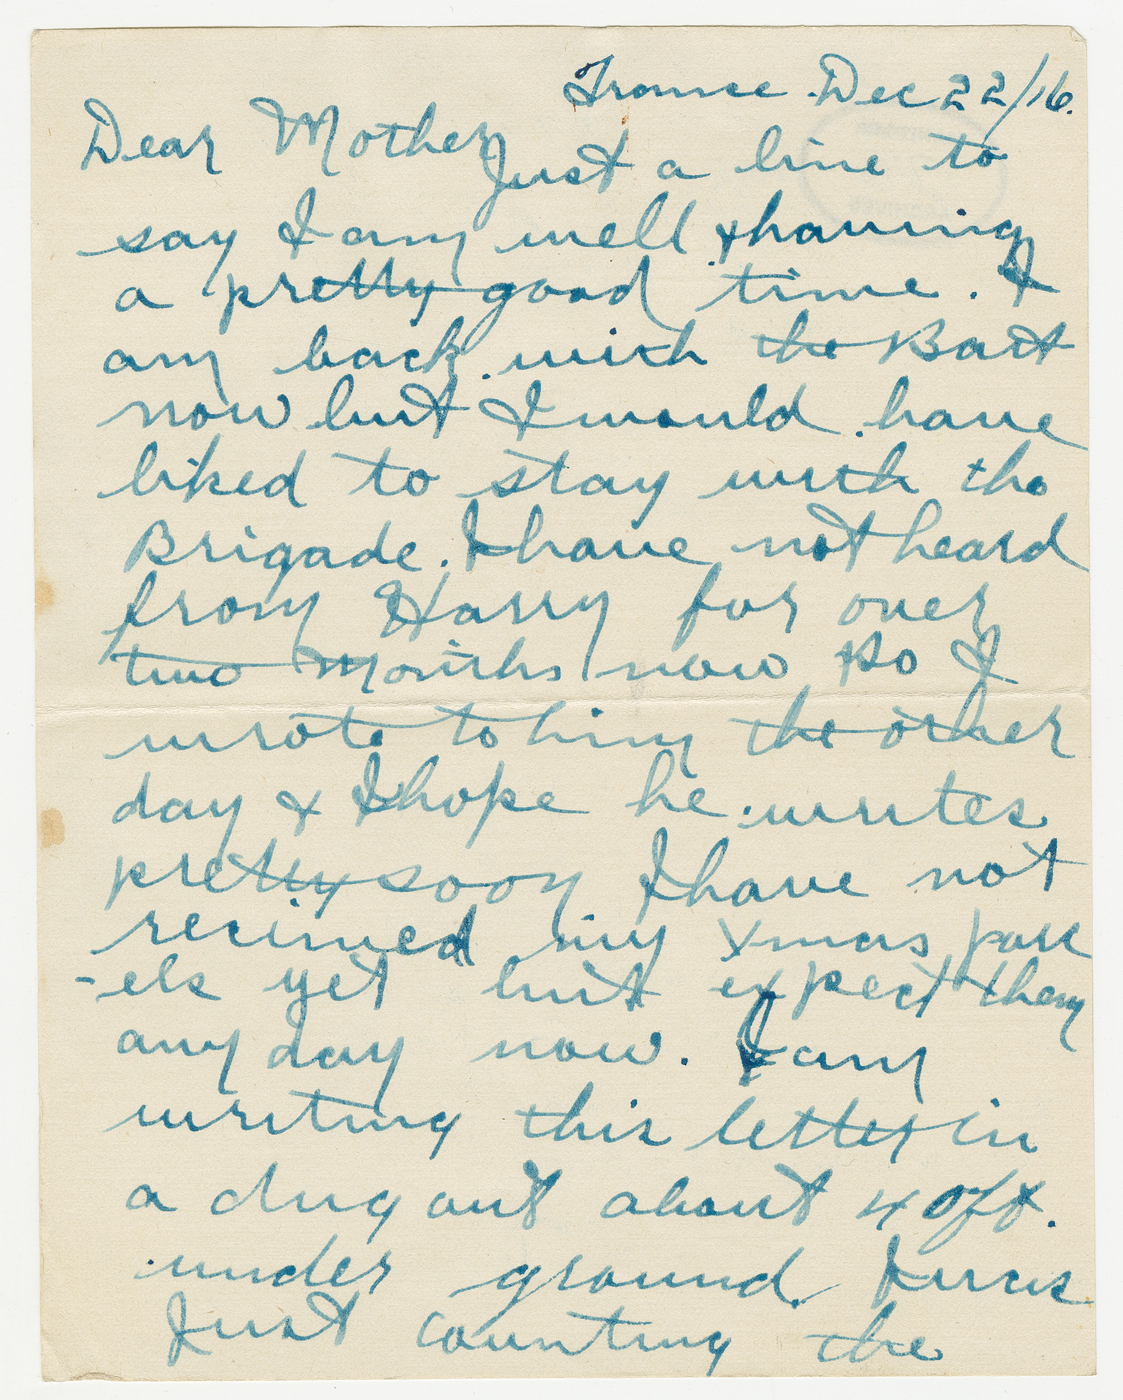 France Dec 22/16.
Dear Mother
Just a line to
say I am well & having
a pretty good time. I
am back with the Batt
now but I would have
liked to stay with the
Brigade. I have not heard
from Harry for over
two months now so I
wrote to him the other
day & I hope he writes
pretty soon I have not
recieved my Xmas parc
-els yet but expect them
any day now. I am
writing this letter in
a dug out about 40 ft.
under ground. I was
Just counting the